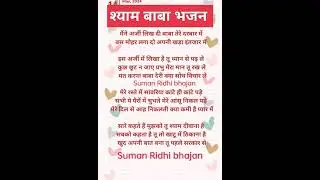 Mar, 2024
श्याम बाबा भजन
मैंने अर्जी लिख दी बाबा तेरे दरबार में
बस मोहर लगा दो अपनी खड़ा इंतजार में
इस अर्जी में लिखा है तू ध्यान से पढ़ ले
कुछ छूट न जाए प्रभु मेरा मान तू रख ले
मत करना बाबा देरी क्या सोच विचार ले
Suman Ridhi bhajan
मेरे रस्ते में सांवरिया कांटे ही कांटे पड़े
सभी ये पैरों में चुभते मेरे आंसू निकल पड़े
मेरे दिल से आह निकलती क्या कमी है प्यार में
सारे कहते हैं मुझको तू श्याम दीवाना है
सबको कहता है तू तो खाटू में ठिकाना है
खुद अपनी बात बना तू पहले सरकार से
Suman Ridhi bhajan